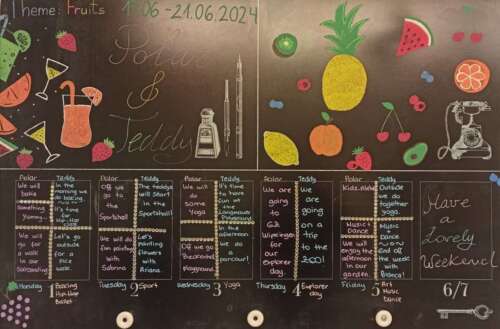 Theme: Fruits 17.06 - 21.06.2024
Polar
&
Teddy
Polar Teddy
We will bake Something Yummy.
In the morning we do baking
It's time for Hip-Hop Ballet
We will go for a walk in our surrounding
Let's go outside for a nice walk
Polar Teddy
Off we go to the Sportshall!
The teddys will start in the Sportshall!
We will do finger painting with Sabrina
Let's painting flowers with Ariana
Polar Teddy
We will do some Yoga
It's time to have fun at the playground
Off we go playground
In the afternoon we do a parcour!
Polar Teddy
We are going to for our explorer day.
We are going on a trip to the zoo!
Polar Teddy
Music + Dance
Outside we do together yoga.
We will enjoy the afternoon in our garden.
Music + Dance
End off the week with Bianca!
Have a Lovely Weekend!
Monday 1 Dancing Hip-Hop Ballet
Tuesday 2 Sport
Wednesday 3 Yoga
Thursday 4 Explorer day
Friday 5 Art Music Dance
6/7